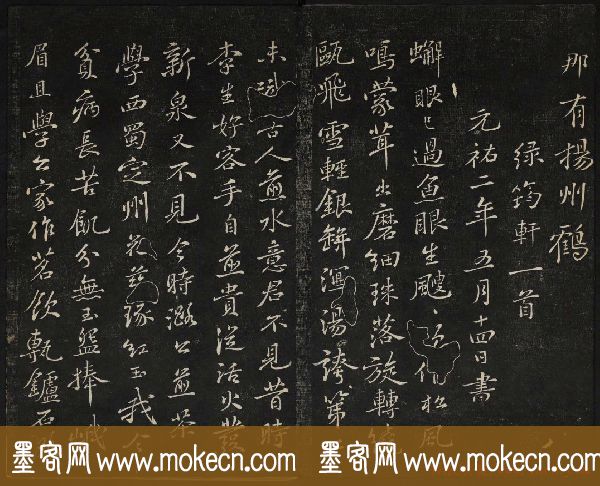 那有揚州鶴
綠筠軒一首
元祐二年五月十四日書
蠏眼已過魚眼生颼〻欲作松風
鳴蒙茸出磨細珠落旋轉
甌飛雪輕銀缾瀉湯誇第
未識古人煎水意君不見昔時
李生好客手自煎貴從活火發
新泉又不見今時潞公煎茶
學西蜀定州花瓷琢紅玉我今
貧病長苦飢分無玉盌捧蛾
眉且學公家作茗飲甎鑪
墨客网 www.mokecn.com 墨客网 www.mokecn.com